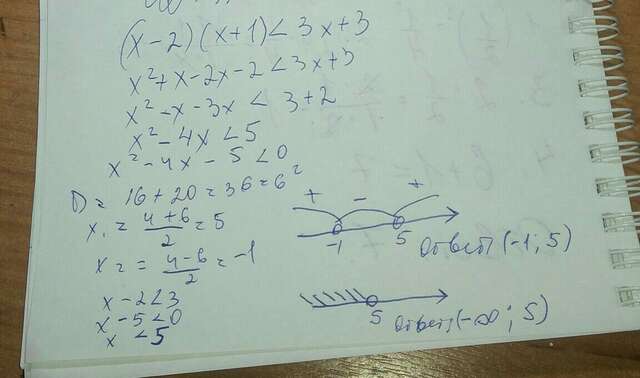 (x-2)(x+1)<3x+3
x²+x-2x-2<3x+3
x²-x-3x<3+2
x²-4x<5
x²-4x-5<0
D=16+20=36=6²
x₁=4+6/2=5
x₂=4-6/2=-1
+ - +
-1 5
Ответ(-1;5)
x-2<3
x-5<0
x<5
5
Ответ(-∞;5)